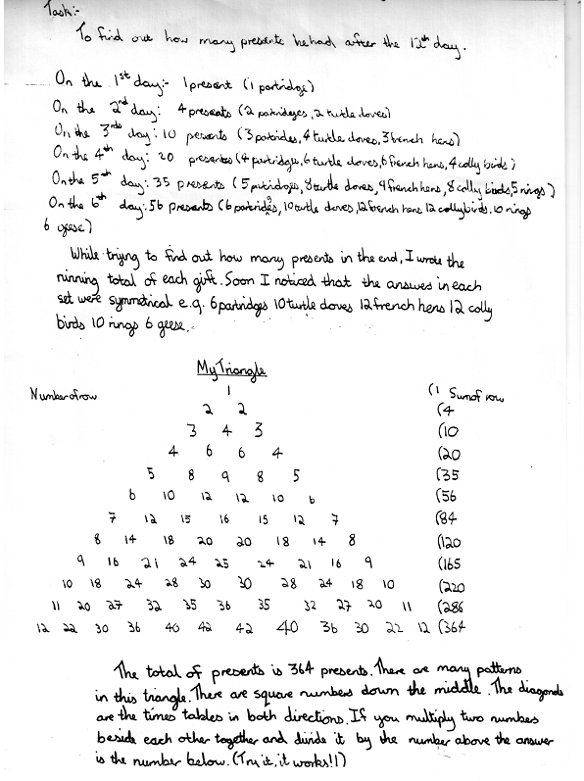 Task:-
To find out how many presents he had after the 12th day.
On the 1st day:- 1 present (1 partridge)
On the 2nd day: 4 presents (2 partridges, 2 turtle doves)
On the 3rd day: 10 persents (3 patrides, 4 turtle doves, 3 french hens)
On the 4th day: 20 presentes (4 partridges, 6 turtle doves, 6 french hens, 4 colly birds)
On the 5th day: 35 presents (5 patridges, 8 turtle doves, 9 french hens, 8 colly birds, 5 rings)
On the 6th day: 56 presents (6 partridges, 10 turtle doves, 12 french hens 12 colly birds, 10 rings
6 geese)
While trying to find out how many presents in the end, I wrote the
running total of each gift. Soon I noticed that the answers in each
set were symmetrical e.g. 6 partridges 10 turtle doves 12 french hens 12 colly
birds 10 rings 6 geese.
My Triangle
Number of row 1 (1 Sum of row
2 2 (4
3 4 3 (10
4 6 6 4 (20
5 8 9 8 5 (35
6 10 12 12 10 6 (56
7 12 15 16 15 12 7 (84
8 14 18 20 20 18 14 8 (120
9 16 21 24 25 24 21 16 9 (165
10 18 24 28 30 30 28 24 18 10 (220
11 20 27 32 35 36 35 32 27 20 11 (286
12 22 30 36 40 42 42 40 36 30 22 12 (364
The total of presents is 364 presents. There are many patterns
in this triangle. There are square numbers down the middle. The diagonals
are the times tables in both directions. If you multiply two numbers
beside each other together and divide it by the number above the answer
is the number below. (Try it, it works!!)